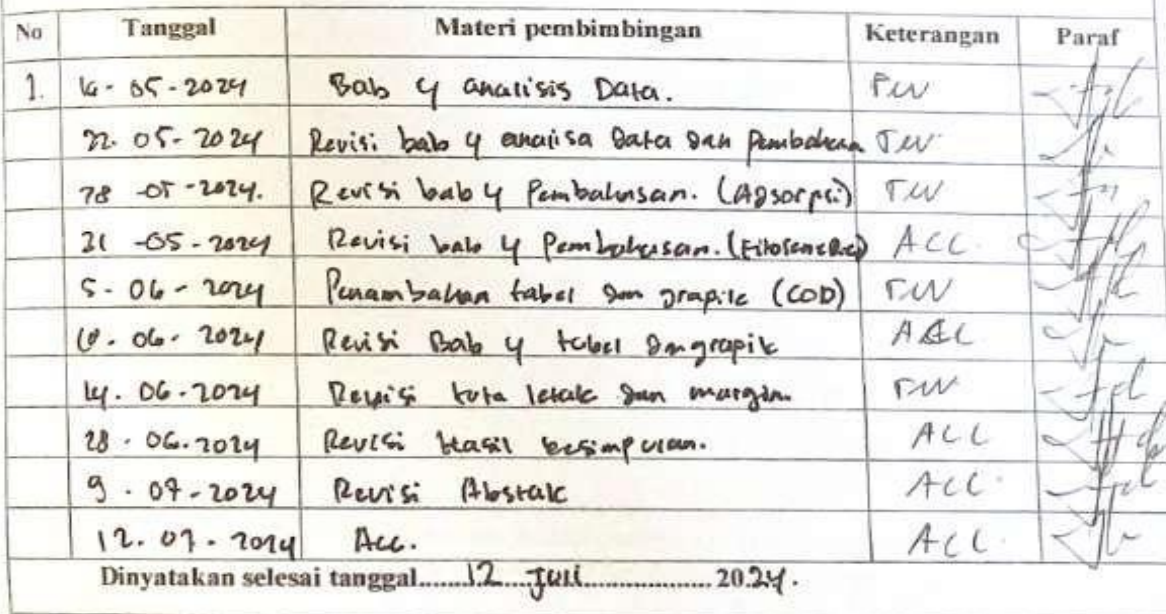 No Tanggal Materi pembimbingan Keterangan Paraf
1. 16-05-2024 Bab 4 analisis Data.
22.05-2024 Revisi bab 4 analisa Data dan Pembahasan
28-05-2024. Revisi bab 4 Pembahasan. (Adsorpsi)
31-05-2024 Revisi bab 4 Pembahasan. ACC.
5-06-2024 Penambahan tabel dan grapik (COD)
10.06.2024 Revisi Bab 4 tabel dan grapik ACC
14.06-2024 Revisi tata letak dan margin.
28.06.2024 Revisi Hasil kesimpulan. ACC
9.07-2024 Revisi Abstak ACC.
12.07-2024 Acc. ACC.
Dinyatakan selesai tanggal.......12....Juli.................... 2024.